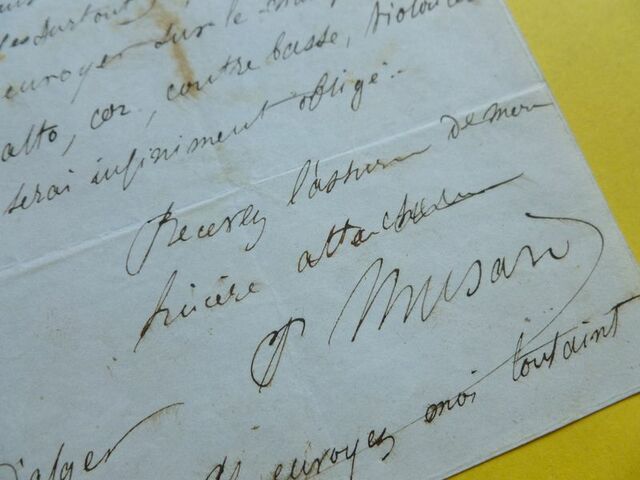 surtout
envoyer sur le
alto, cor, contre basse, violoncel
serai infiniment obligé.
Recevez l'assuran de mon
sincère attachem
P Musard
d'alger
envoyez moi toutaint